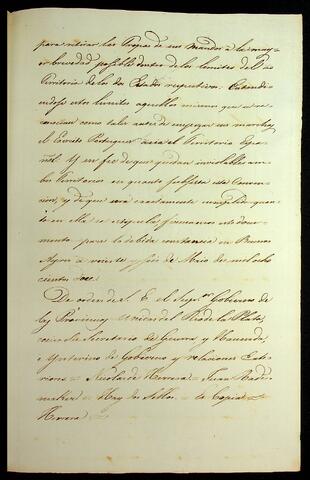 para retirar las Tropas de su mando a la may-
or brevedad posible dentro de los limites del
Territorio de los dos Estados respectivos. Entendi-
endose estos limites aquellos mismos que se re-
conocian como tales antes de empezar su marcha
el Exercito Portugues hacia el Territorio Espa-
ñol. Y en fe de que quedan inviolables am-
bos Territorios en quanto subsista esta Conven-
cion, y de que será exactamente cumplido quan-
to en ella se estipula firmamos este docu-
mento para la debida constancia en Buenos
Ayres a veinte y seis de Maio de mil ocho
cientos doce.
De orden de S. E. el Sup.or Gobierno de
las Provincias Unidas del Rio de la Plata,
como Secretario de Guerra y Hacienda,
e Ynterino de Gobierno y relaciones Exte-
riores = Nicolas de Herrera = Juan Rade-
maker = Hay dos Sellos. = Es Copia =
Herrera =